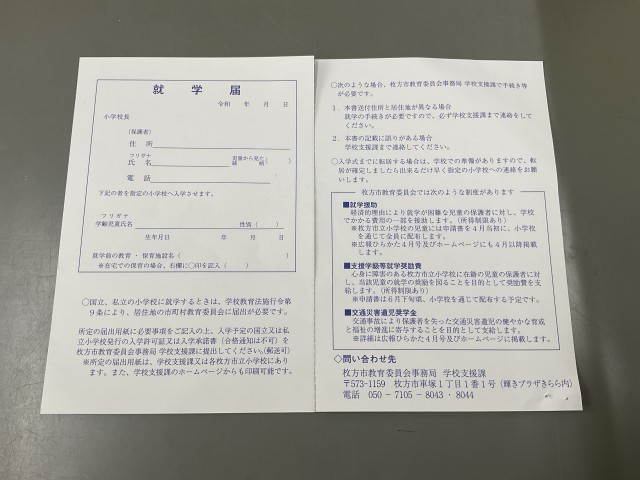 就学届
令和　年　月　日
小学校長
(保護者)
住所
フリガナ
氏名
児童から見た
続柄
(　)
電話
下記の者を指定の小学校へ入学させます。
フリガナ
学齢児童氏名
性別（　）
生年月日　年　月　日
就学前の教育・保育施設名（　）
※在宅での保育の場合、右欄に〇印を記入（　）
〇国立、私立の小学校に就学するときは、学校教育法施行令第
９条により、居住地の市町村教育委員会に届出が必要です。
所定の届出用紙に必要事項をご記入の上、入学予定の国立又は私
立小学校発行の入学許可証又は入学承諾書（合格通知は不可）を
枚方市教育委員会事務局 学校支援課に提出してください。(郵送可)
※所定の届出用紙は、学校支援課又は各枚方市立小学校にあり
ます。また、学校支援課のホームページからも印刷可能です。
〇次のような場合、枚方市教育委員会事務局 学校支援課で手続き等
が必要です。
1．本書送付住所と居住地が異なる場合
就学の手続きが必要ですので、必ず学校支援課まで連絡をして
ください。
2．本書の記載に誤りがある場合
学校支援課まで連絡してください。
〇入学式までに転居する場合は、学校での準備がありますので、転
居が確定しましたら出来るだけ早く指定の小学校への連絡をお願
いします。
枚方市教育委員会では次のような制度があります
■就学援助
経済的理由により就学が困難な児童の保護者に対し、学校
でかかる費用の一部を援助します。（所得制限あり）
※枚方市立小学校の児童には申請書を４月当初に、小学校
を通じて全員に配布します。
※広報ひらかた４月号及びホームページにも４月以降掲載
します。
■支援学級等就学奨励費
心身に障害のある枚方市立小学校に在籍の児童の保護者に対
し、当該児童の就学の奨励を図ることを目的として奨励費を支
給します。（所得制限あり）
※申請書は６月下旬頃、小学校を通じて配布する予定です。
■交通災害遺児奨学金
交通事故により保護者を失った交通災害遺児の健やかな育成
と福祉の増進に寄与することを目的として支給します。
※詳細は広報ひらかた４月号及びホームページに掲載します。
◇問い合わせ先
枚方市教育委員会事務局　学校支援課
〒573-1159　枚方市車塚１丁目１番１号（輝きプラザきらら内）
電話　050－7105－8043・8044